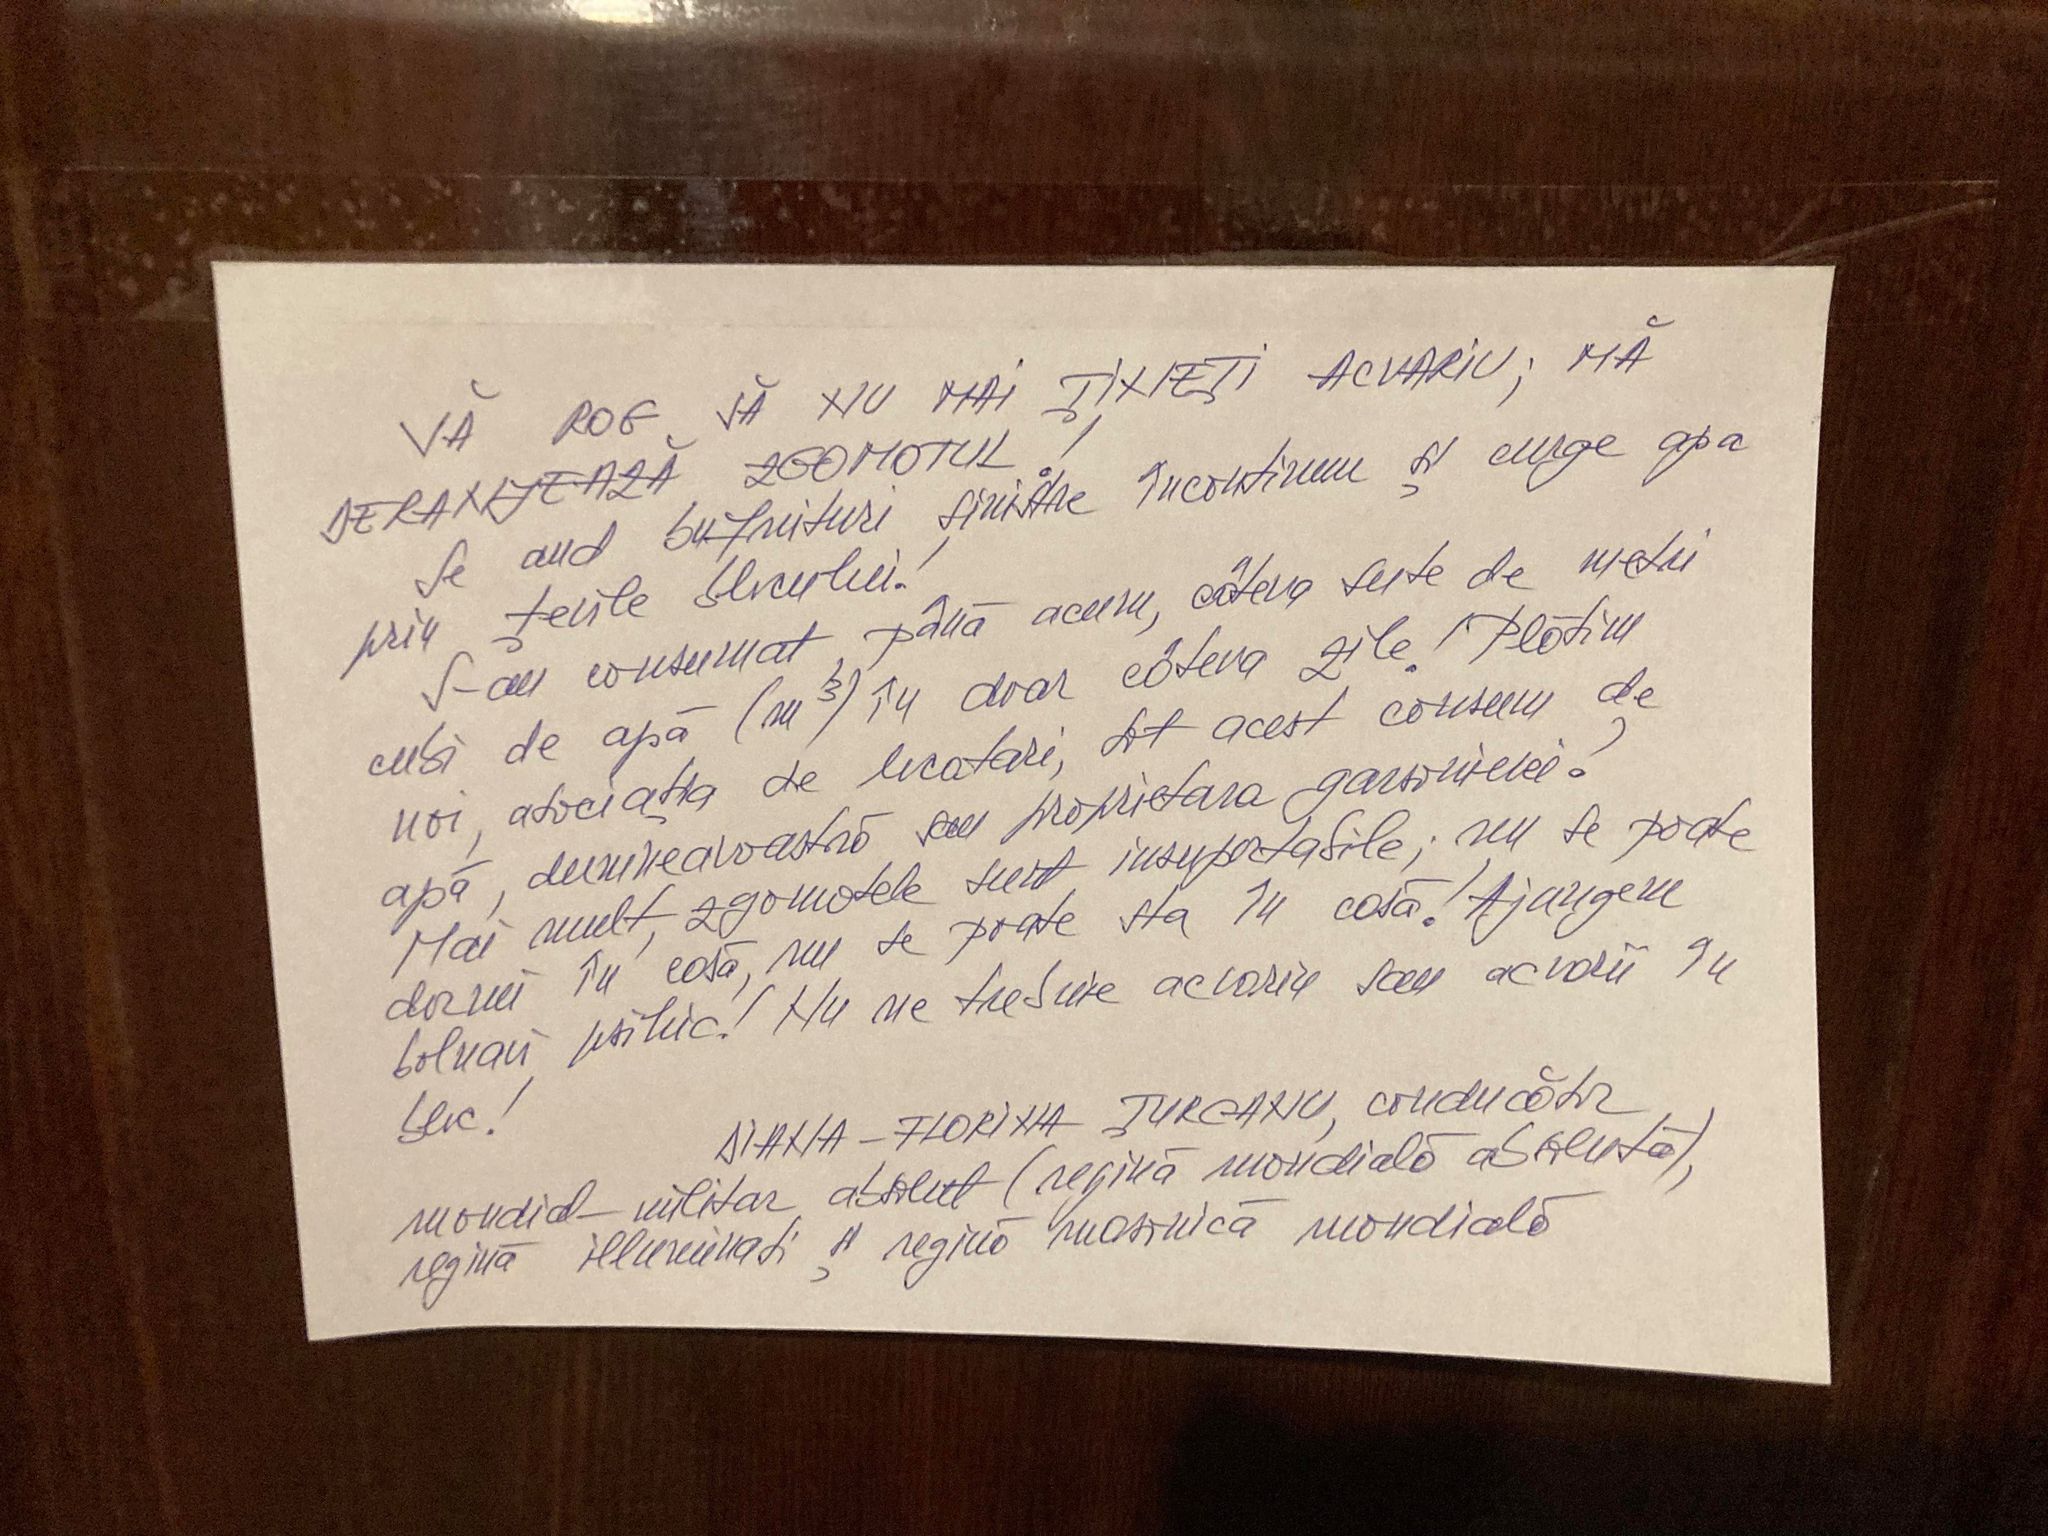 VĂ ROG SĂ NU MAI ŢINEŢI ACVARIU; MĂ
DERANJEAZĂ ZGOMOTUL!
Se aud bufnituri sinistre încontinuu şi curge apa
prin ţevile blocului!
S-au consumat, până acum, câteva sute de metri
cubi de apă (m³) în doar câteva zile! Plătim
noi, asociaţia de locatari, tot acest consum de
apă, dumneavoastră sau proprietara garsonierei?
Mai mult, zgomotele sunt insuportabile; nu se poate
dormi în casă, nu se poate sta în casă! Ajungem
bolnavi psihic! Nu ne trebuie acvariu sau acvarii în
bloc!
DIANA-FLORINA ŢURCANU, conducător
mondial-militar absolut (regină mondială absolută),
regină illuminati şi regină masonică mondială